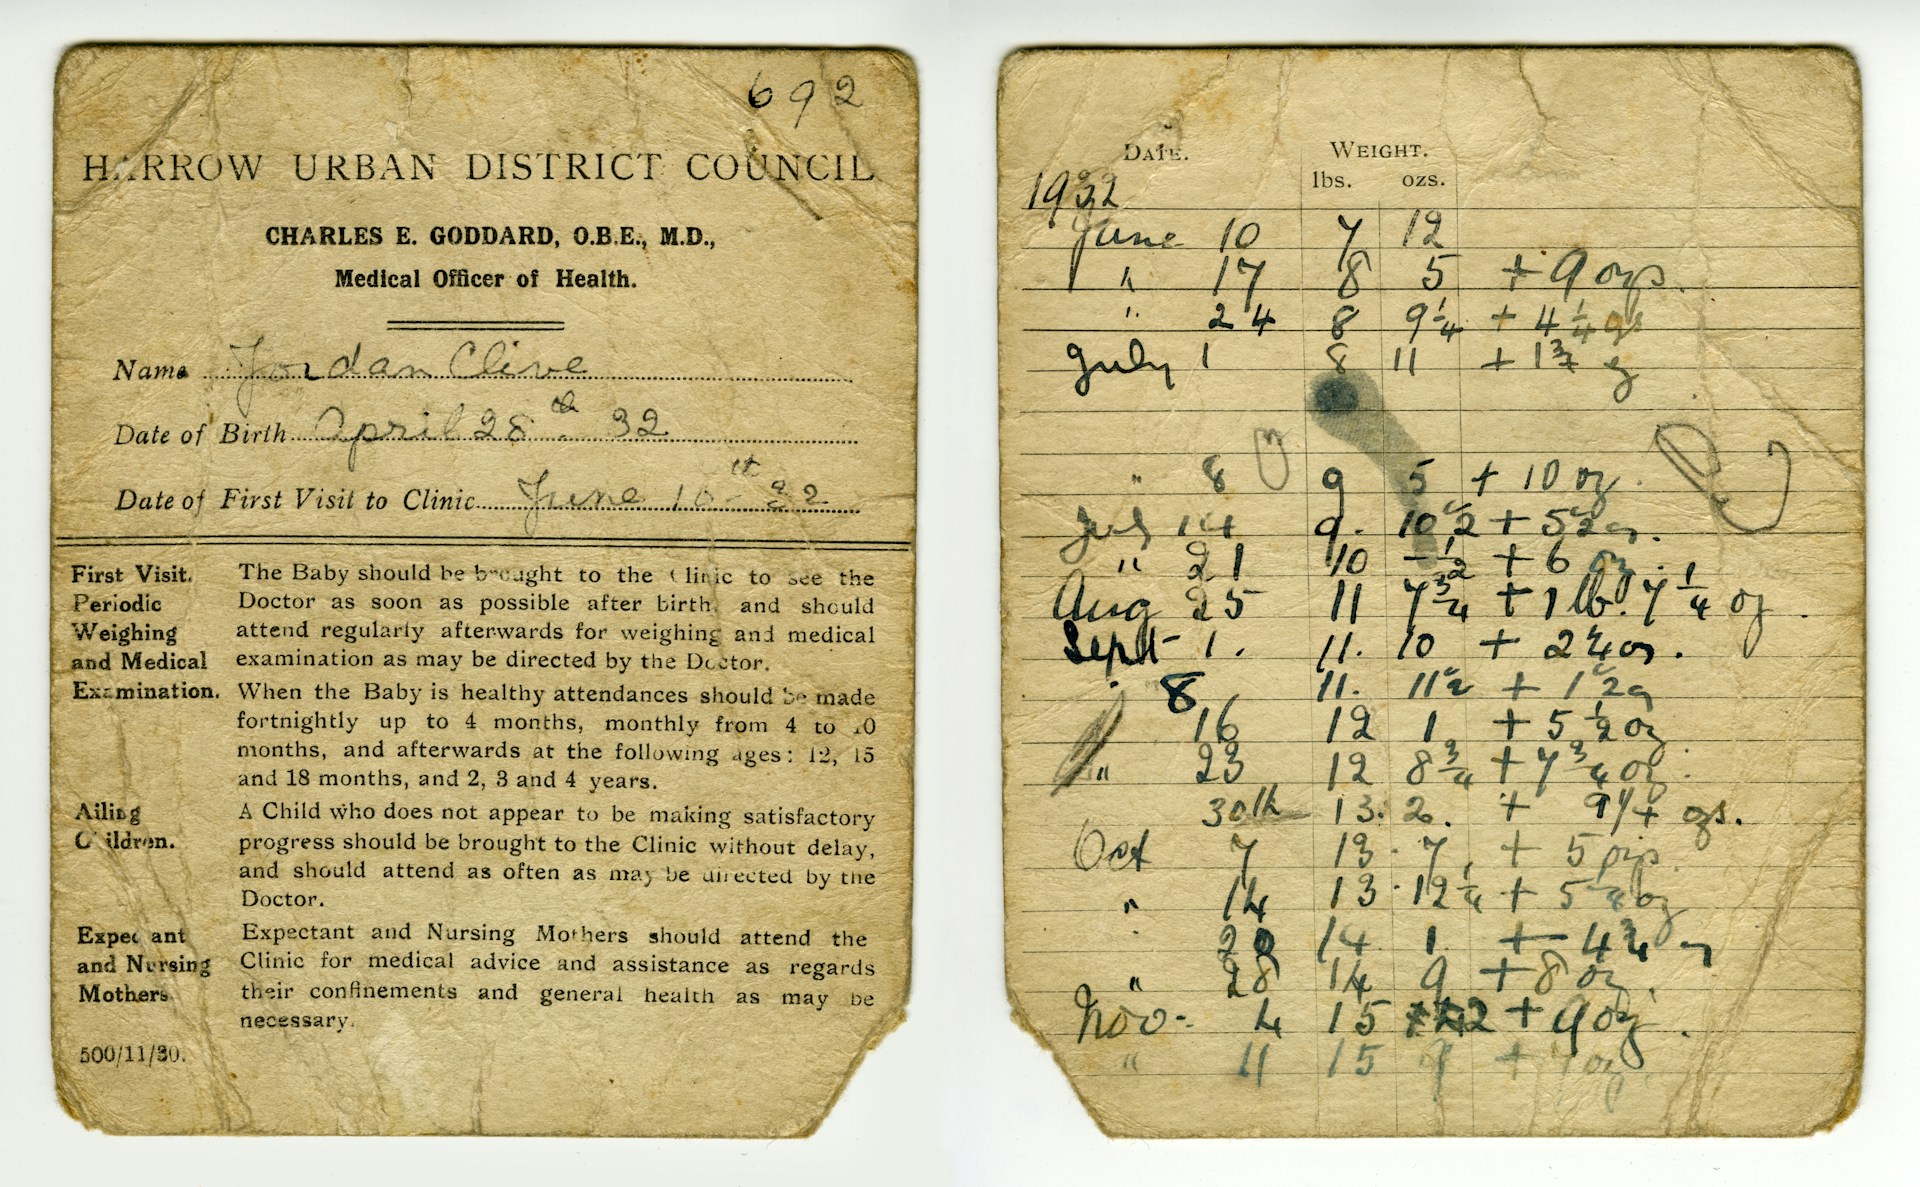 692
HARROW URBAN DISTRICT COUNCIL
CHARLES E. GODDARD, O.B.E., M.D.,
Medical Officer of Health.
Name Jordan Clive
Date of Birth April 28th 32
Date of First Visit to Clinic June 10th 32
First Visit. The Baby should be brought to the Clinic to see the
Periodic Doctor as soon as possible after birth, and should
Weighing attend regularly afterwards for weighing and medical
and Medical examination as may be directed by the Doctor.
Examination. When the Baby is healthy attendances should be made
fortnightly up to 4 months, monthly from 4 to 10
months, and afterwards at the following ages: 12, 15
and 18 months, and 2, 3 and 4 years.
Ailing A Child who does not appear to be making satisfactory
Children. progress should be brought to the Clinic without delay,
and should attend as often as may be directed by the
Doctor.
Expectant Expectant and Nursing Mothers should attend the
and Nursing Clinic for medical advice and assistance as regards
Mothers. their confinements and general health as may be
necessary.
500/11/30.
DATE. WEIGHT.
lbs. ozs.
1932
June 10 7 12
" 17 8 5 + 9 ozs.
" 24 8 9 1/4 + 4 1/4 ozs
July 1 8 11 + 1 3/4 oz
" 8 9 5 + 10 oz.
July 14 9. 10 1/2 + 5 1/2 oz.
" 21 10 - 1/2 + 6 oz.
Aug 25 11 7 3/4 + 1 lb. 7 1/4 oz.
Sept 1. 11. 10 + 2 1/4 oz.
8 11. 11 1/2 + 1 1/2 oz
16 12 1 + 5 1/2 oz
" 23 12 8 3/4 + 7 3/4 oz.
30th 13. 2. + 9 1/4 ozs.
Oct 7 13. 7 + 5 ozs.
" 14 13. 12 1/4 + 5 1/4 oz
14. 1. + 4 3/4 oz
" 28 14 9 + 8 oz.
Nov- 4 15 2 + 9 oz.
" 11 15 9 + 7 oz